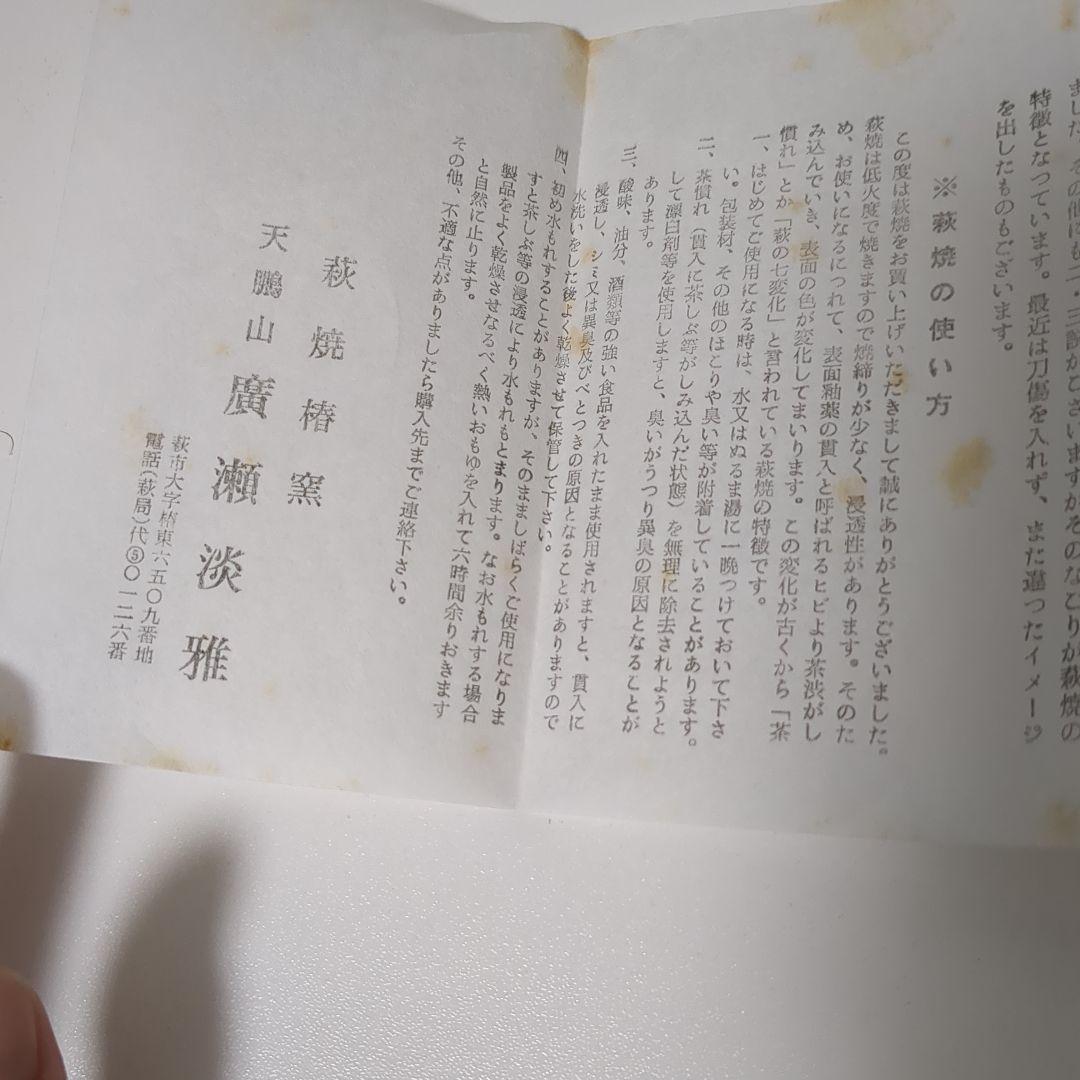 ました。その他にも二・三説がございますがそのなごりが萩焼の
特徴となつています。最近は刀傷を入れず、また違つたイメージ
を出したものもございます。
※萩焼の使い方
この度は萩焼をお買い上げいただきまして誠にありがとうございました。
萩焼は低火度で焼きますので焼締りが少なく、浸透性があります。そのた
め、お使いになるにつれて、表面釉薬の貫入と呼ばれるヒビより茶渋がし
み込んでいき、表面の色が変化してまいります。この変化が古くから「茶
慣れ」とか「萩の七変化」と言われている萩焼の特徴です。
一、はじめてご使用になる時は、水又はぬるま湯に一晩つけておいて下さ
い。包装材、その他のほこりや臭い等が附着していることがあります。
二、茶慣れ(貫入に茶しぶ等がしみ込んだ状態)を無理に除去されようと
して漂白剤等を使用しますと、臭いがうつり異臭の原因となることが
あります。
三、酸味、油分、酒類等の強い食品を入れたまま使用されますと、貫入に
浸透し、シミ又は異臭及びべとつきの原因となることがありますので
水洗いをした後よく乾燥させて保管して下さい。
四、初め水もれすることがありますが、そのまましばらくご使用になりま
すと茶しぶ等の浸透により水もれもとまります。なお水もれする場合
製品をよく乾燥させなるべく熱いおもゆを入れて六時間余りおきます
と自然に止ります。
その他、不適な点がありましたら購入先までご連絡下さい。
萩焼椿窯
天鵬山 廣瀬淡雅
萩市大字椿東六五〇九番地
電話(萩局)代⑤〇一二六番